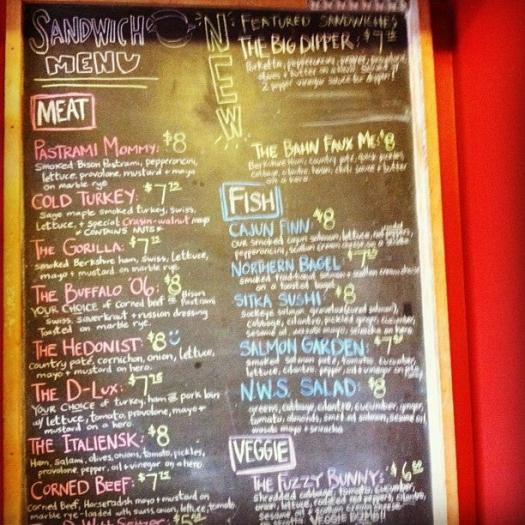 SANDWICH
MENU
MEAT
PASTRAMI MOMMY: $8
Smoked Bison Pastrami, pepperoncini,
lettuce, provolone, mustard + mayo
on marble rye
COLD TURKEY: $7
Sage maple smoked turkey, swiss,
Lettuce, + special Craisin-walnut mayo
* CONTAINS NUTS *
THE GORILLA: $7
smoked Berkshire ham, Swiss, lettuce,
mayo + mustard on marble rye.
THE BUFFALO '06: $8
YOUR CHOICE of corned beef or Bison Pastrami
swiss, sauerkraut + russian dressing
Toasted on marble rye.
THE HEDONIST: $8
country pate, cornichon, onion, lettuce,
mayo + mustard on hero.
THE D-LUX: $7
YOUR CHOICE of turkey, ham or pork loin
w/ lettuce, tomato, provolone, mayo +
mustard on a hero.
THE ITALIENSK: $8
Ham, salami, olives, onions, tomato, pickles,
provolone, pepper, oil + vinegar on a hero.
CORNED BEEF: $7
Corned Beef, Horseradish mayo + mustard on
marble rye - loaded with swiss, onion, lettuce, tomato
NEW
FEATURED SANDWICHES
THE BIG DIPPER: $7
Porketta, pepperoncini,
olives + butter on a
2 pepper vinegar sauce for dipper!
THE BAHN FAUX MI: $8
Berkshire Ham, country pate, quick pickles,
cabbage, cilantro,
on a hero.
FISH
CAJUN FINN $8
our smoked cajun salmon, lettuce, red peppers,
pepperoncini, scallion cream cheese on a
NORTHERN BAGEL $7
smoked traditional salmon + scallion cream cheese
on a toasted bagel
SITKA SUSHI: $8
sockeye salmon gravlax (cured salmon),
cabbage, cilantro, pickled ginger, cucumber,
sesame oil, wasabi mayo, sriracha on hero.
SALMON GARDEN: $7
smoked salmon pate, tomato, cucumber,
lettuce, cilantro, pepper, oil + vinegar on
N.W.S. SALAD: $8
greens, cabbage, cilantro, cucumber, ginger,
tomato, almonds, smoked salmon, sesame oil,
wasabi mayo + sriracha
VEGGIE
THE FUZZY BUNNY: $6
shredded cabbage, tomato, cucumber,
onion, lettuce, roasted red peppers, cilantro,